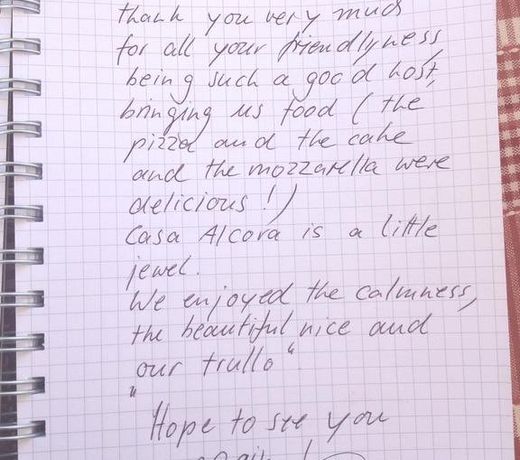 thank you very much
for all your friendlyness,
being such a good host,
bringing us food ( the
pizza and the cake
and the mozzarella were
delicious ! )
Casa Alcora is a little
jewel.
We enjoyed the calmness,
the beautiful nice and
our trullo “
"
Hope to see you
again !